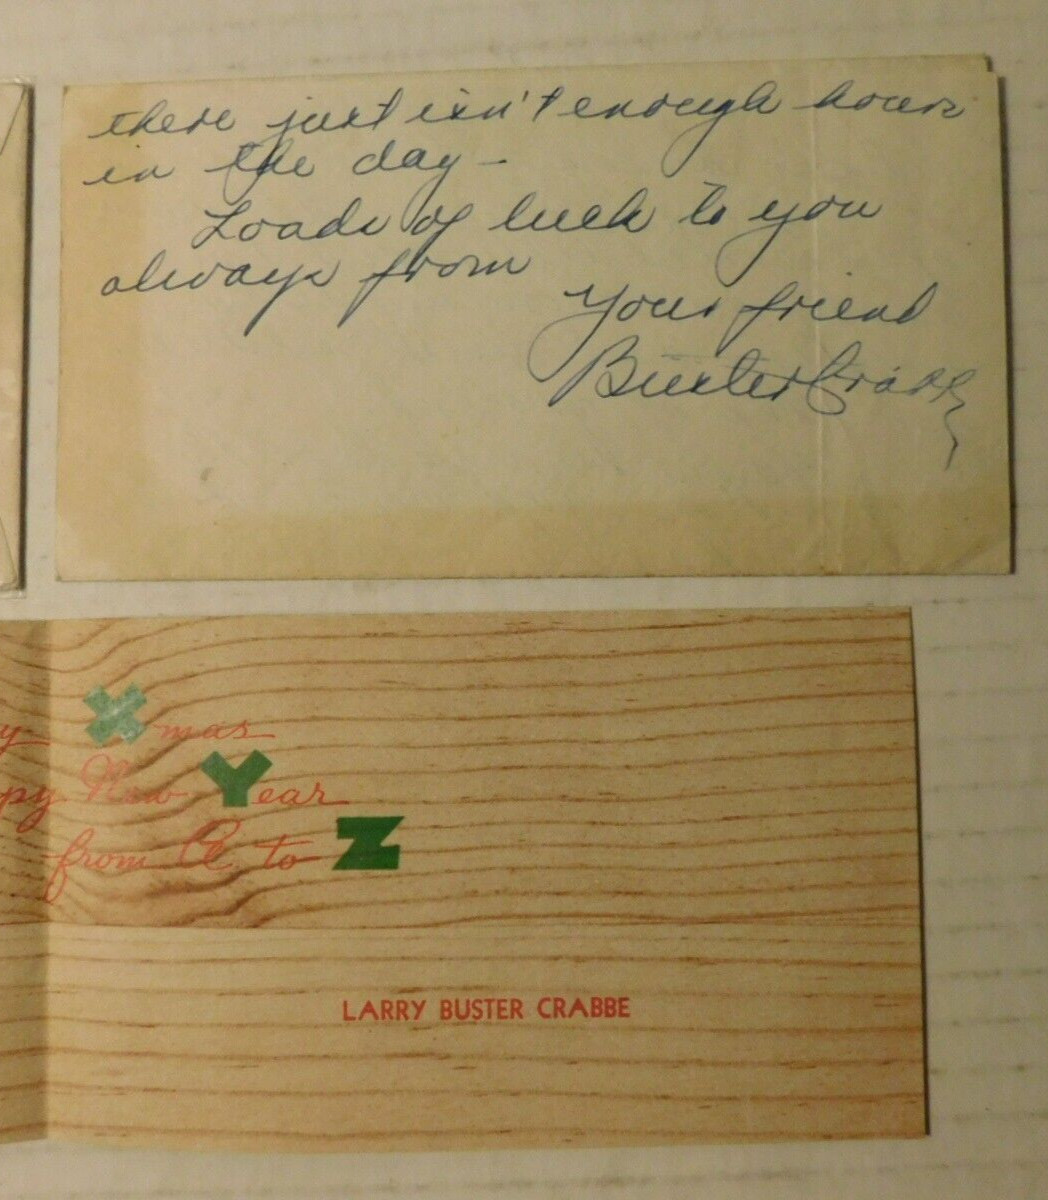 there just isn't enough hours
in the day –
Loads of luck to you
always from
Your friend
Buster Crabbe
y Xmas
ppy New Year
from A to Z
LARRY BUSTER CRABBE